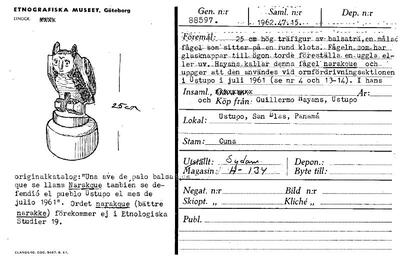 ETNOGRAFISKA MUSEET, Göteborg
25cm
originalkatalog: "Una ave de palo balsa
que se llama Narakque tambien se de-
fendió el pueblo Ustupo el mes de
julio 1961". Ordet narakque (bättre
narakke) förekommer ej i Etnologiska
Studier 19.
Gen. n:r
88597.
Saml. n:r
1962.47.15.
Föremål: 25 cm hög träfigur av balsaträ, en målad
fågel som sitter på en rund klots. Fågeln som har
glasknappar till ögon torde föreställa en uggla el-
ler uv. Hayans kallar denna fågel narakque och
uppger att den användes vid ormfördrivningsaktionen
i Ustupo i juli 1961 (se nr 4 och 13-14). I hans
Insaml.,
och Köp från: Guillermo Hayans, Ustupo
År:
Lokal: Ustupo, San Blas, Panamá
Stam: Cuna
Utställt: Sydam
Depon.:
Magasin: A-134
Byte till:
Negat. n:r
Bild n:r
Skiopt. n:r
Kliché n:r
Publ.